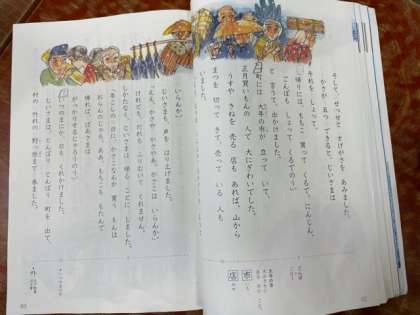 そして、せっせと すげがさを あみました。
かさが 五つ できると、じいさまは
それを しょって、
「帰りには、もちこ 買って くるで。にんじん、
ごんぼも しょって くるでのう。」
と 言うて、出かけました。
町には 大年の市が 立って いて、
正月買いもんの 人で 大にぎわいでした。
うすや きねを 売る 店も あれば、山から
まつを 切って きて、売って いる 人も
いました。
いらんか。」
じいさまも、声を はり上げました。
「ええ、かさや かさやあ。かさこは いらんか。」
けれども、だれも ふりむいて くれません。
しかたなく、じいさまは 帰る ことに しました。
「年こしの 日に、かさこなんか 買う もんは
おらんのじゃろ。ああ、もちこも もたんで
帰れば、ばあさまは
がっかりするじゃろうのう。」
いつのまにか、日も くれかけました。
じいさまは、とんぼり とんぼり 町を 出て、
村の 外れの 野っ原まで 来ました。
市
店
外